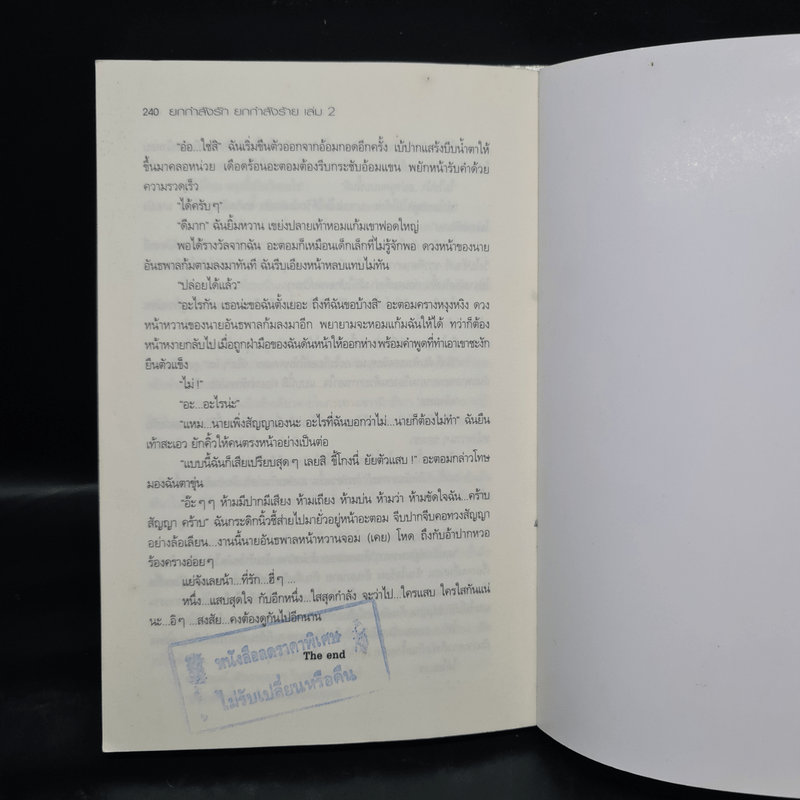 240 ยกกำลังรัก ยกกำลังร้าย เล่ม 2
“อ๋อ...ใช่สิ” ฉันเริ่มขืนตัวออกจากอ้อมกอดอีกครั้ง เบ้ปากแสร้งบีบน้ำตาให้
ขึ้นมาคลอหน่วย เดือดร้อนอะตอมต้องรีบกระชับอ้อมแขน พยักหน้ารับคำด้วย
ความรวดเร็ว
“ได้ครับๆ”
“ดีมาก” ฉันยิ้มหวาน เขย่งปลายเท้าหอมแก้มเขาฟอดใหญ่
พอได้รางวัลจากฉัน อะตอมก็เหมือนเด็กเล็กที่ไม่รู้จักพอ ดวงหน้าของนาย
อันธพาลก้มตามลงมาทันที ฉันรีบเอียงหน้าหลบแทบไม่ทัน
“ปล่อยได้แล้ว”
“อะไรกัน เธอน่ะขอฉันตั้งเยอะ ถึงทีฉันขอบ้างสิ” อะตอมครางหงุงหงิง ดวง
หน้าหวานของนายอันธพาลก้มลงมาอีก พยายามจะหอมแก้มฉันให้ได้ ทว่าก็ต้อง
หน้าหงายกลับไป เมื่อถูกฝ่ามือของฉันดันหน้าให้ออกห่างพร้อมคำพูดที่ทำเอาเขาชะงัก
ยืนตัวแข็ง
“ไม่ !”
“อะ...อะไรน่ะ”
“แหม...นายเพิ่งสัญญาเองนะ อะไรที่ฉันบอกว่าไม่...นายก็ต้องไม่ทำ” ฉันยืน
เท้าสะเอว ยักคิ้วให้คนตรงหน้าอย่างเป็นต่อ
“แบบนี้ฉันก็เสียเปรียบสุดๆ เลยสิ ขี้โกงนี่ ยัยตัวแสบ !” อะตอมกล่าวโทษ
มองฉันตาขุ่น
“อ๊ะๆๆ ห้ามมีปากมีเสียง ห้ามเถียง ห้ามบ่น ห้ามว่า ห้ามขัดใจฉัน...คร้าบ
สัญญา คร้าบ” ฉันกระดิกนิ้วชี้ส่ายไปมายั่วอยู่หน้าอะตอม จีบปากจีบคอทวงสัญญา
อย่างล้อเลียน...งานนี้นายอันธพาลหน้าหวานจอม (เคย) โหด ถึงกับอ้าปากหวอ
ร้องครางอ่อยๆ
แย่จังเลยน้า...ที่รัก...ฮี่ๆ ...
หนึ่ง...แสบสุดใจ กับอีกหนึ่ง...ใสสุดกำลัง จะว่าไป...ใครแสบ ใครใสกันแน่
นะ...อิๆ ...สงสัย...คงต้องดูกันไปอีกนาน
The end
หนังสือลดราคาพิเศษ
ไม่รับเปลี่ยนหรือคืน